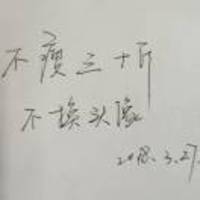 不瘦三十斤
不换头像
2018.3.27.